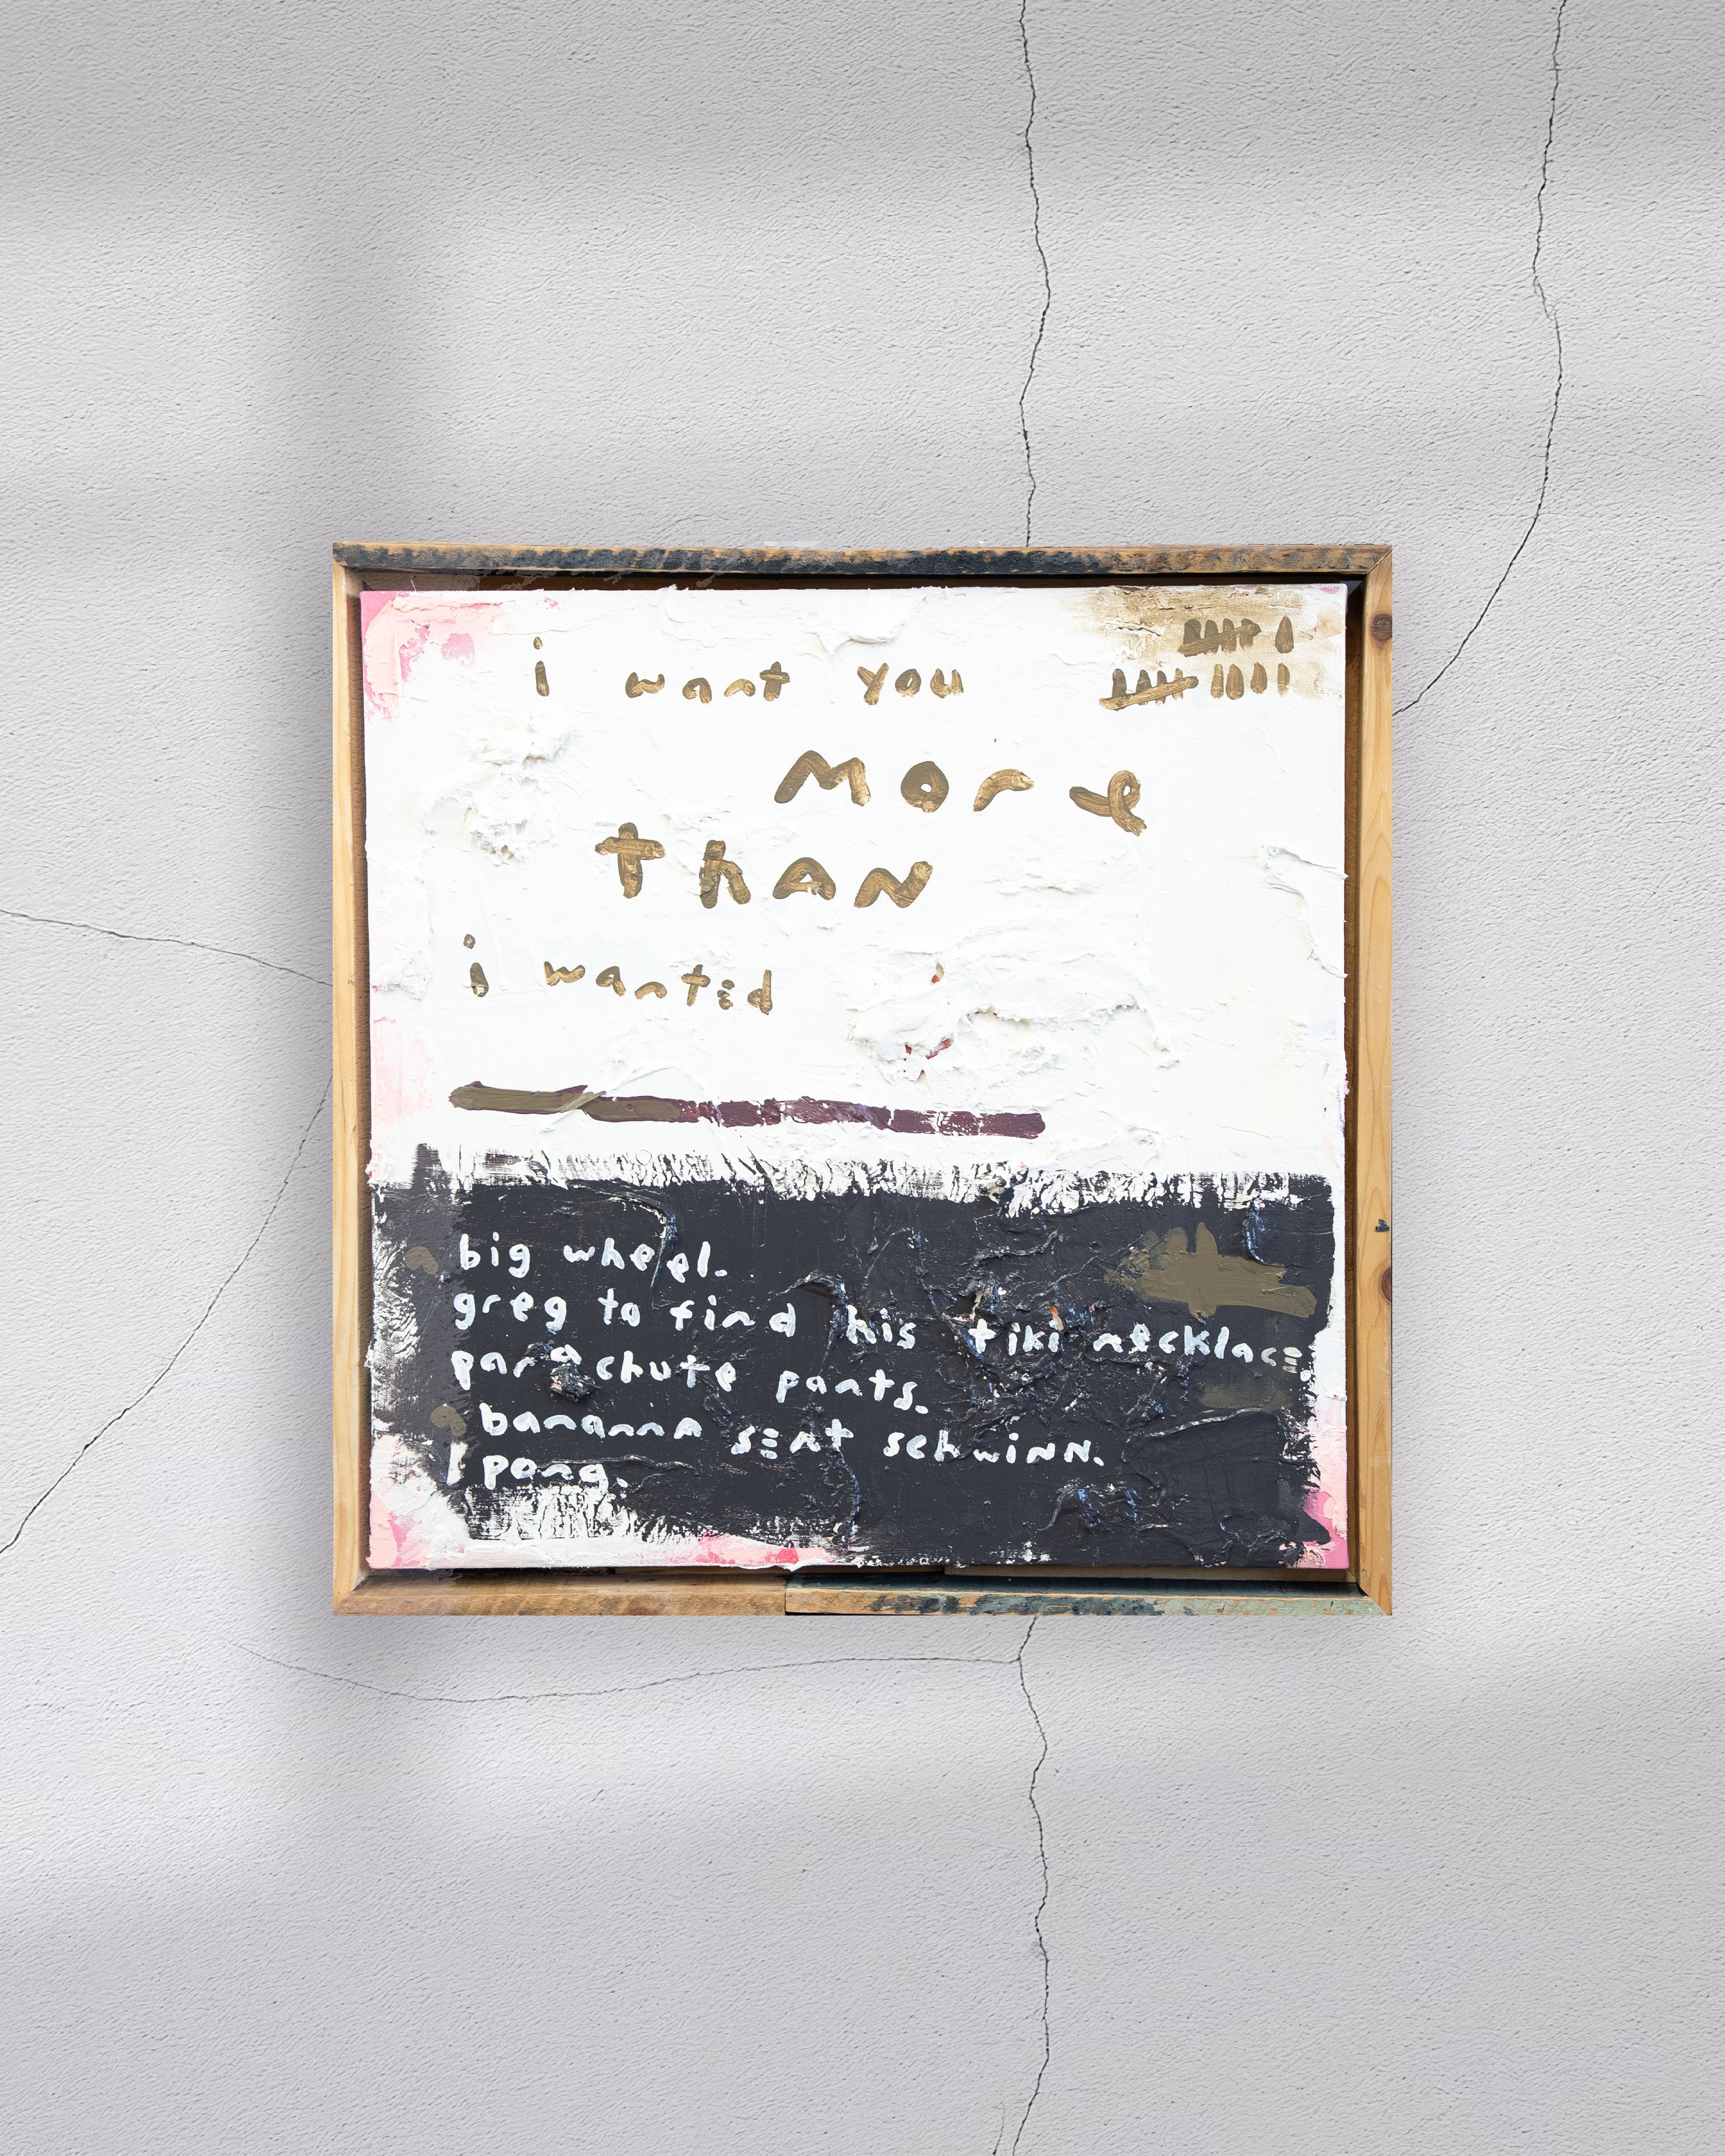 i want you
more
than
i wanted
big wheel.
greg to find his tiki necklace
parachute pants.
bananna seat schwinn.
pong.